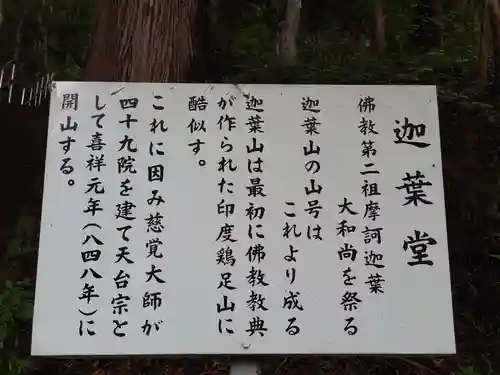 迦葉堂
佛教第二祖摩訶迦葉
大和尚を祭る
迦葉山の山号は
これより成る
迦葉山は最初に佛教教典
が作られた印度鶏足山に
酷似す。
これに因み慈覚大師が
四十九院を建て天台宗と
して喜祥元年(八四八年)に
開山する。